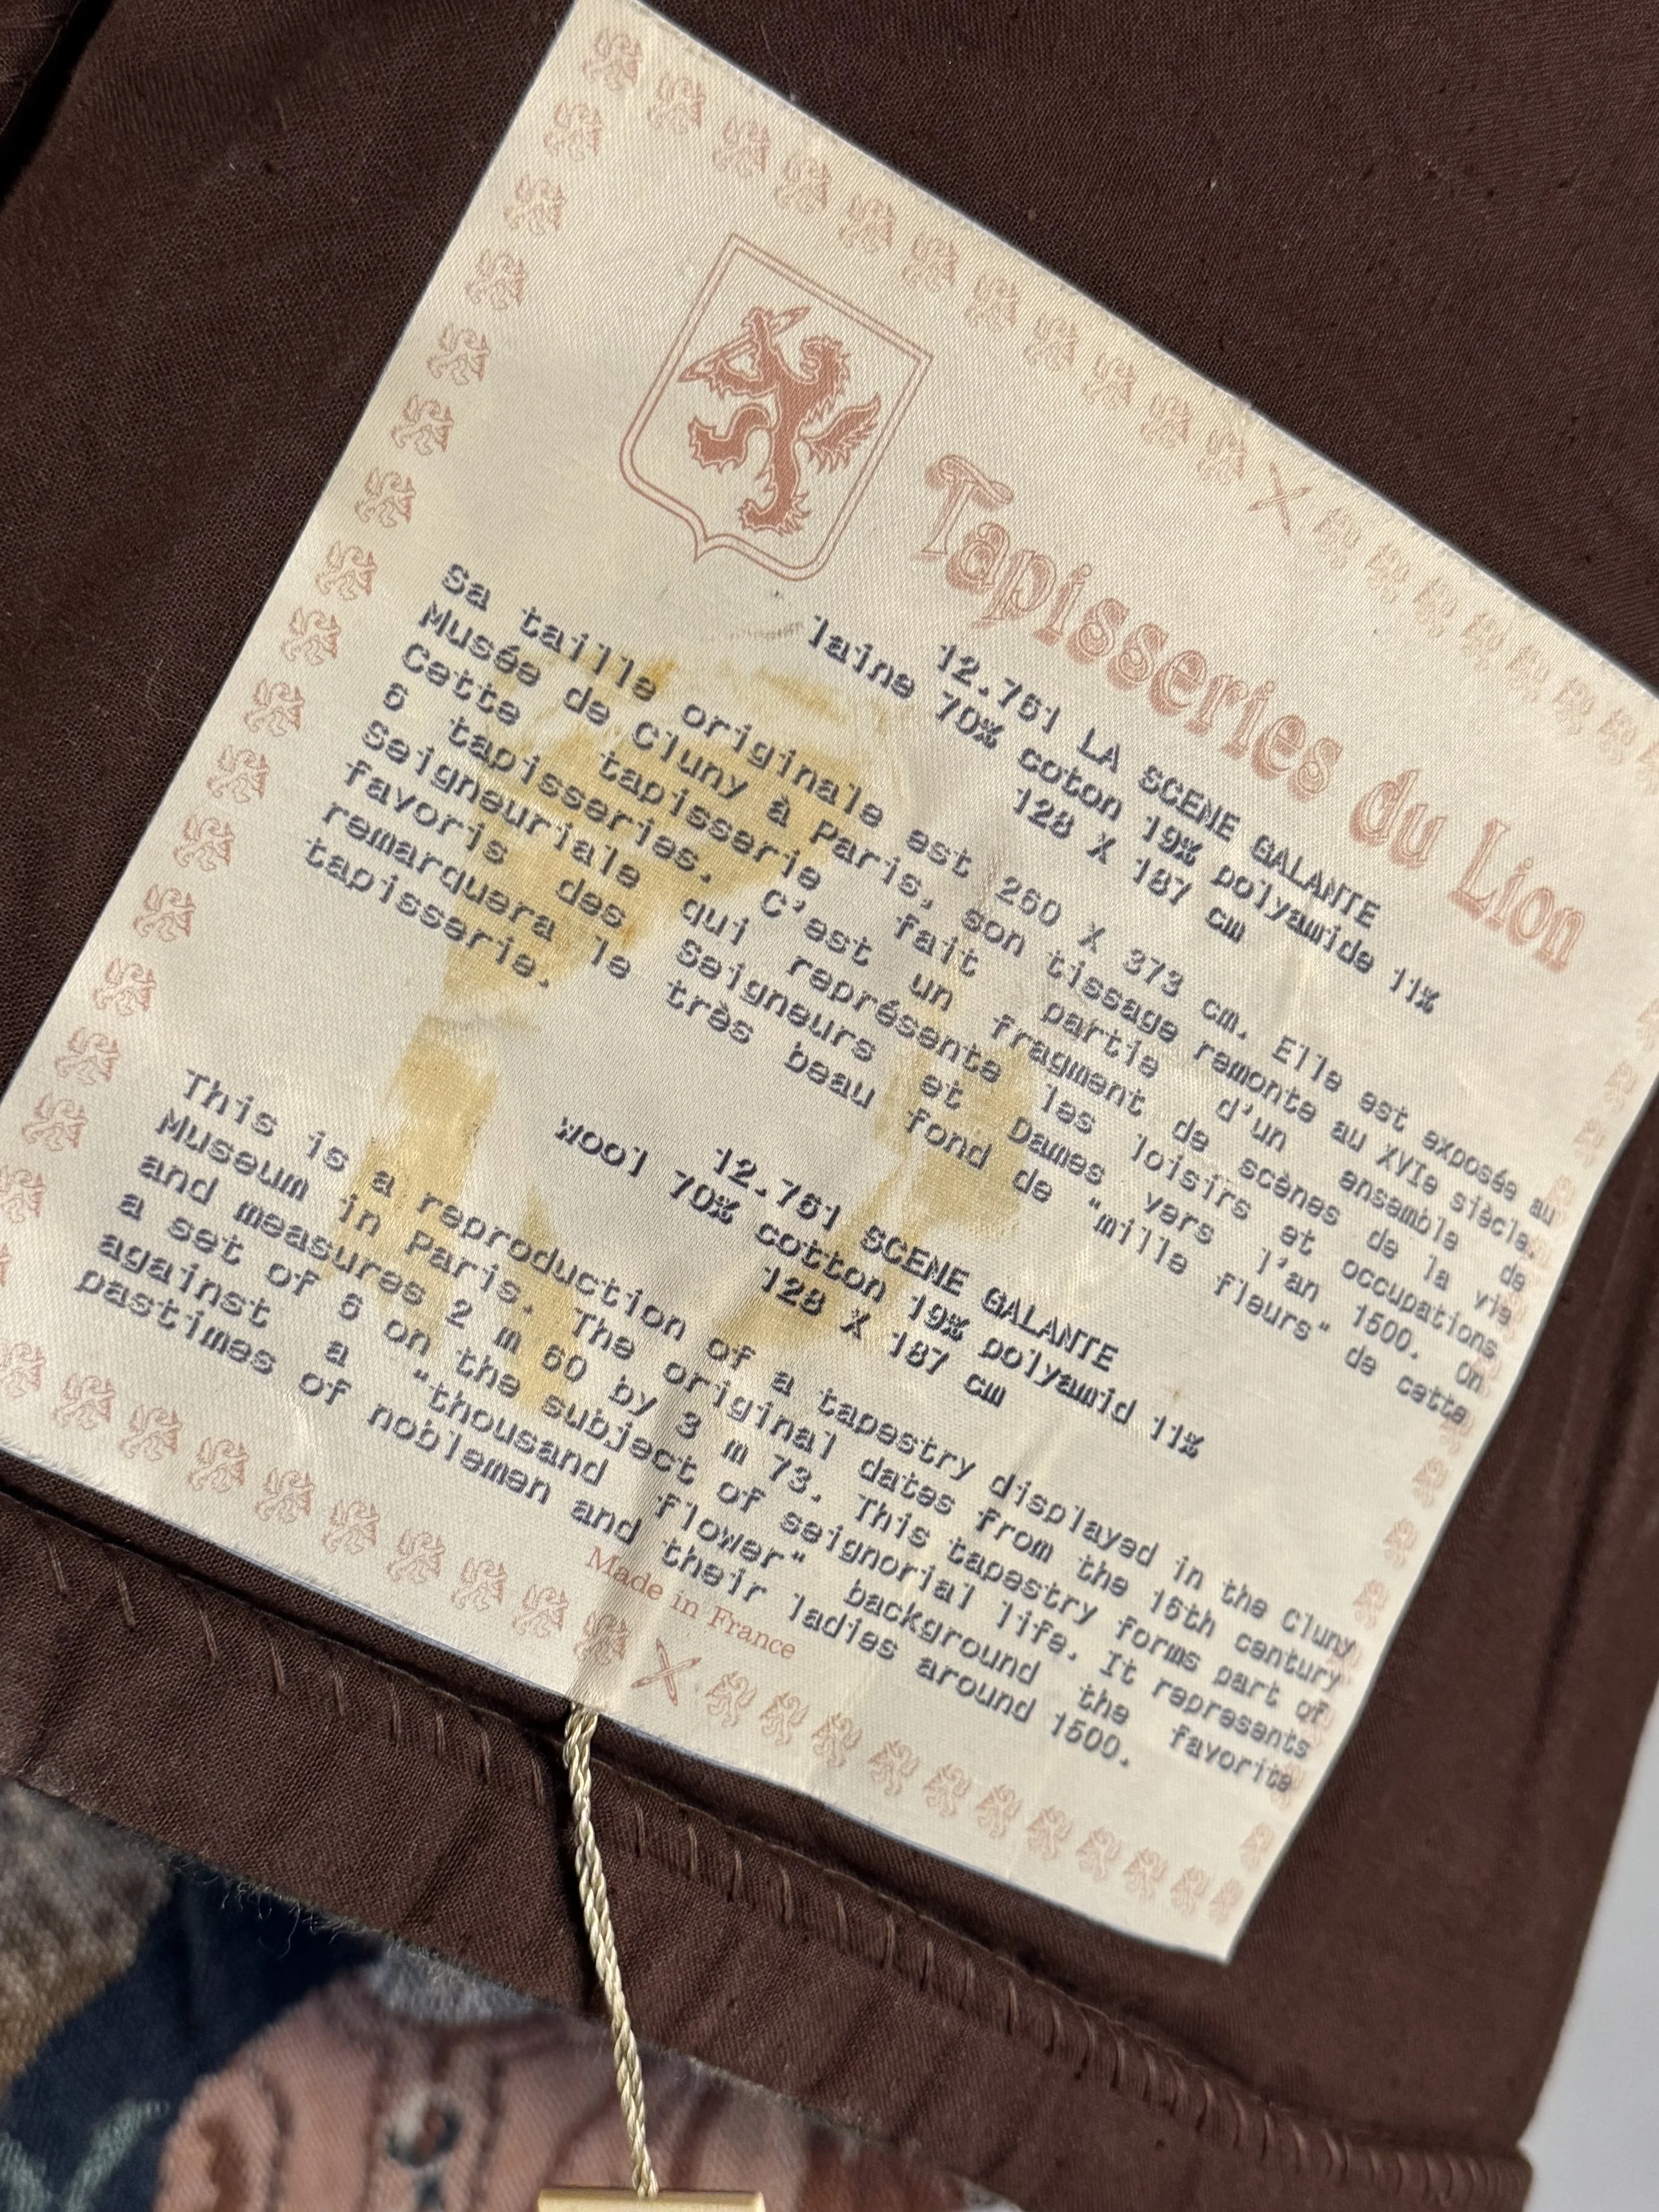 Tapisseries du Lion
12.761 LA SCENE GALANTE
laine 70% coton 19% polyamide 11%
128 X 187 cm
Sa taille originale est 260 X 373 cm. Elle est exposée au
Musée de Cluny à Paris, son tissage remonte au XVIe siècle.
Cette tapisserie fait partie d'un ensemble de
6 tapisseries. C'est un fragment de scènes de la vie
Seigneuriale qui représente les loisirs et occupations
favoris des Seigneurs et Dames vers l'an 1500. On
remarquera le très beau fond de "mille fleurs" de cette
tapisserie.
12.761 SCENE GALANTE
wool 70% cotton 19% polyamid 11%
128 X 187 cm
This is a reproduction of a tapestry displayed in the Cluny
Museum in Paris. The original dates from the 16th century
and measures 2 m 60 by 3 m 73. This tapestry forms part of
a set of 6 on the subject of seignorial life. It represents
against a "thousand flower" background the favorite
pastimes of noblemen and their ladies around 1500.
Made in France